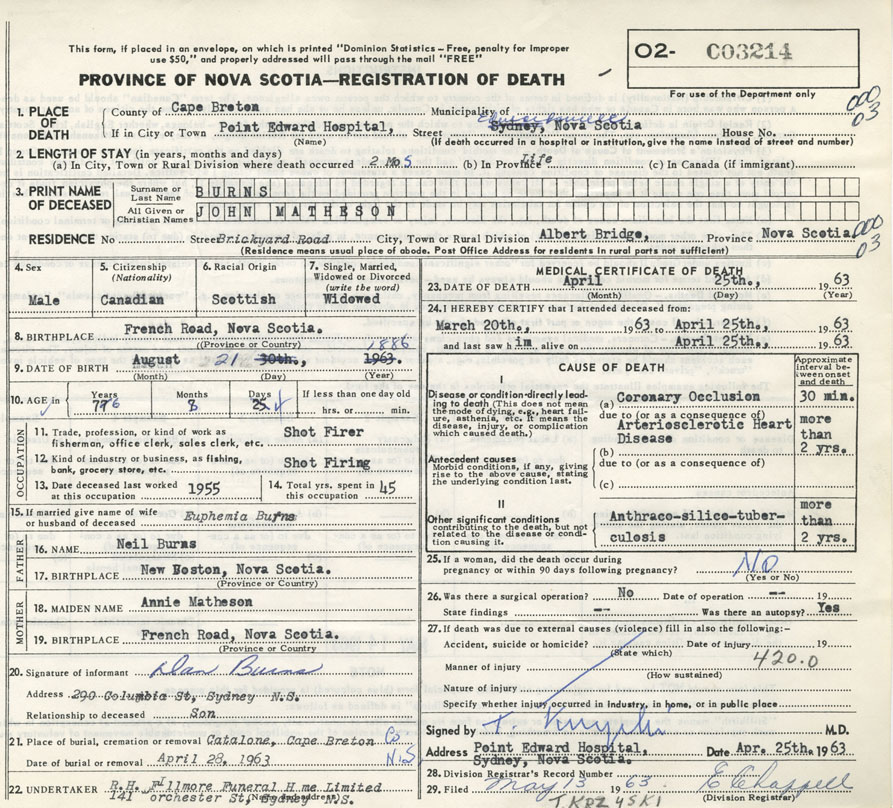 This form, if placed in an envelope, on which is printed "Dominion Statistics – Free, penalty for improper
use $50," and properly addressed will pass through the mail "FREE"
O2- C03214
PROVINCE OF NOVA SCOTIA—REGISTRATION OF DEATH
For use of the Department only
000
03
1. PLACE OF DEATH
County of Cape Breton Municipality of
If in City or Town Point Edward Hospital, Street Sydney, Nova Scotia House No.
(Name) (If death occurred in a hospital or institution, give the name instead of street and number)
2. LENGTH OF STAY (in years, months and days)
(a) In City, Town or Rural Division where death occurred 2 Mos (b) In Province Life (c) In Canada (if immigrant)
3. PRINT NAME OF DECEASED
Surname or Last Name BURNS
All Given or Christian Names JOHN MATHESON
RESIDENCE No Street Brickyard Road City, Town or Rural Division Albert Bridge, Province Nova Scotia
000
03
(Residence means usual place of abode. Post Office Address for residents in rural parts not sufficient)
4. Sex
Male
5. Citizenship
(Nationality)
Canadian
6. Racial Origin
Scottish
7. Single, Married,
Widowed or Divorced
(write the word)
Widowed
8. BIRTHPLACE French Road, Nova Scotia.
(Province or Country)
1886
9. DATE OF BIRTH August 21 30th, 1963.
(Month) (Day) (Year)
10. AGE in
Years
Months
8
Days
25
If less than one day old
hrs. or min.
OCCUPATION
11. Trade, profession, or kind of work as
fisherman, office clerk, sales clerk, etc. Shot Firer
12. Kind of industry or business, as fishing,
bank, grocery store, etc. Shot Firing
13. Date deceased last worked
at this occupation 1955
14. Total yrs. spent in
this occupation 45
15. If married give name of wife
or husband of deceased Euphemia Burns
FATHER
16. NAME Neil Burns
17. BIRTHPLACE New Boston, Nova Scotia.
(Province or Country)
MOTHER
18. MAIDEN NAME Annie Matheson
19. BIRTHPLACE French Road, Nova Scotia.
(Province or Country)
20.
Signature of informant Dan Burns
Address 290 Columbia St, Sydney N.S.
Relationship to deceased Son
21. Place of burial, cremation or removal Catalone, Cape Breton Co N.S
Date of burial or removal April 28, 1963
22. UNDERTAKER R.H. Fillmore Funeral H me Limited
141 orchester St, Sydney N.S.
(Name and address)
MEDICAL CERTIFICATE OF DEATH
23. DATE OF DEATH April 25th., 1963
(Month) (Day) (Year)
24. I HEREBY CERTIFY that I attended deceased from:
March 20th., 1963 to April 25th., 1963
and last saw h im alive on April 25th., 1963
CAUSE OF DEATH
Approximate interval between onset and death
I
Disease or condition directly leading to death (This does not mean the mode of dying, e.g., heart failure, asthenia, etc. It means the disease, injury, or complication which caused death.)
(a) Coronary Occlusion 30 min.
due to (or as a consequence of)
Arteriosclerotic Heart
Disease
more than 2 yrs.
Antecedent causes
Morbid conditions, if any, giving rise to the above cause, stating the underlying condition last.
(b)
due to (or as a consequence of)
(c)
II
Other significant conditions
contributing to the death, but not related to the disease or condition causing it.
Anthraco-silico-tuber-
culosis
more than 2 yrs.
25. If a woman, did the death occur during
pregnancy or within 90 days following pregnancy? NO
(Yes or No)
26. Was there a surgical operation? No Date of operation -- 19
State findings -- Was there an autopsy? Yes
27. If death was due to external causes (violence) fill in also the following:–
Accident, suicide or homicide? Date of injury 19
(State which)
420.0
Manner of injury
(How sustained)
Nature of injury
Specify whether injury occurred in Industry, in home, or in public place
Signed by M.D.
Address Point Edward Hospital,
Sydney, Nova Scotia. Date Apr. 25th. 1963
28. Division Registrar's Record Number
29. Filed May 13 1963. E Chappell
(Division Registrar)